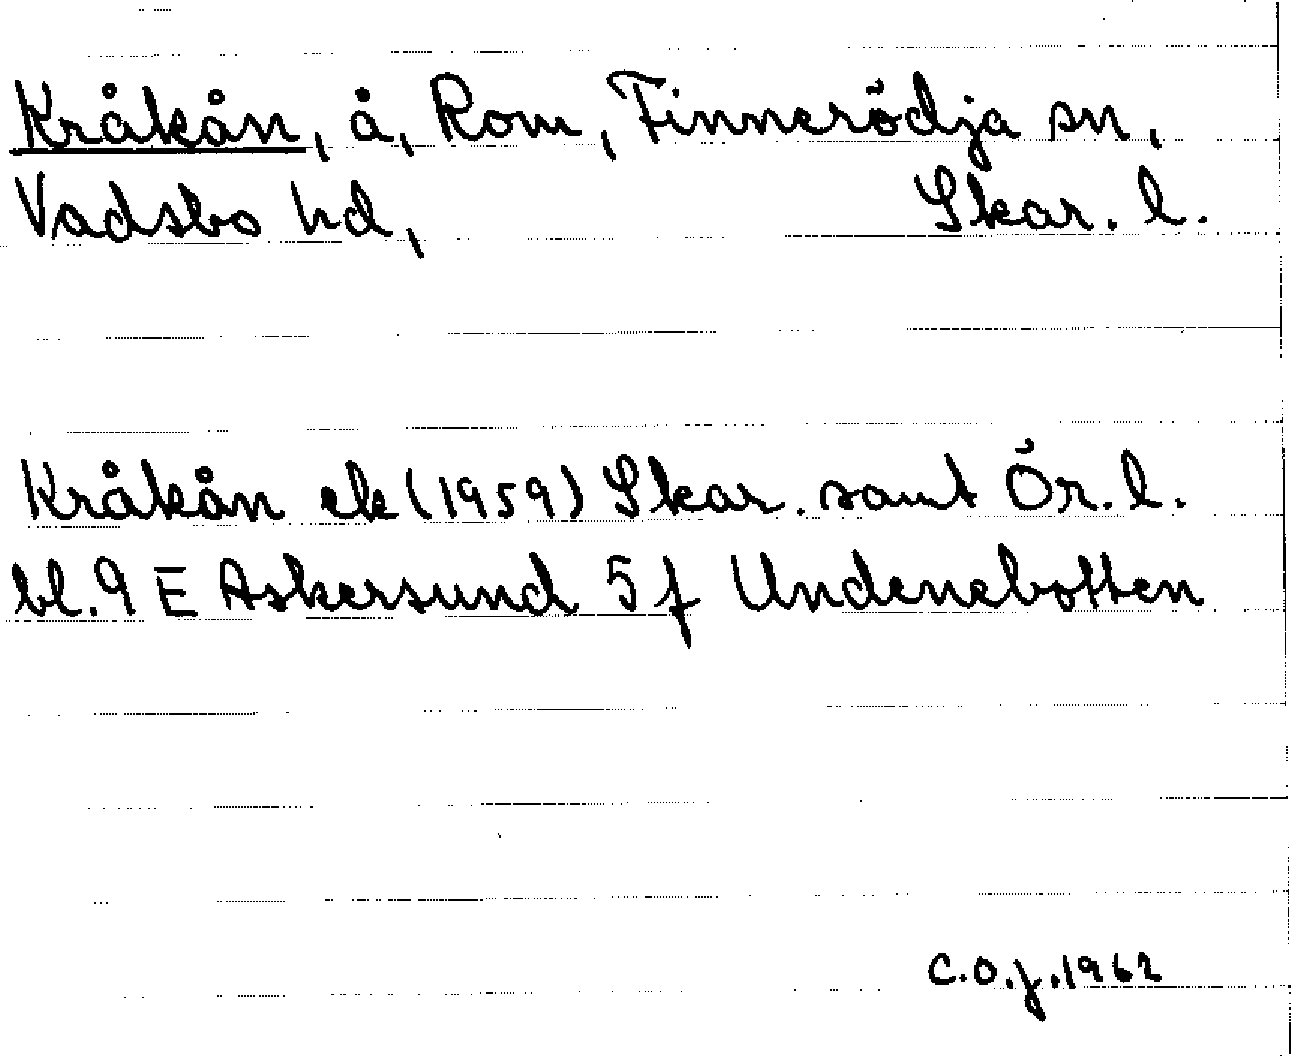 Kråkån, å, Rom, Finnerödja sn,
Vadsbo hd, Skar. l.
Kråkån ek (1959) Skar. samt Ör. l.
bl. 9 E Askersund 5 f Undenebotten
C.O.J. 1962